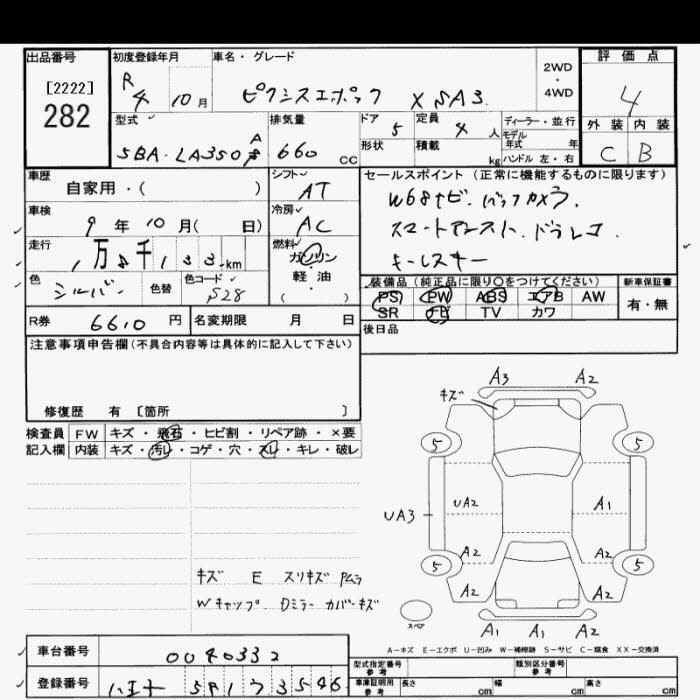 出品番号
[2222]
282
初度登録年月
R 4 10 月
車名・グレード
ピクシスエポック X SA3
2WD
・
4WD
評価点
4
外装 内装
C B
型式
5BA-LA350A
排気量
660 CC
ドア
5
定員
4 人
形状
積載
kg
ディーラー・並行
モデル
年式 年
ハンドル 左・右
車歴
自家用・( )
シフト
AT
セールスポイント (正常に機能するものに限ります)
W68ナビ.バックカメラ.
スマートアシスト.ドラレコ
キーレスキー
車検
9 年 10 月( 日)
冷房
AC
走行
1万8千133km
燃料
ガソリン
軽・油
( )
色
シルバー
色替
色コード
S28
装備品 (純正品に限り〇をつけてください)
PS PW ABS エアB AW
SR ナビ TV カワ
新車保証書
有・無
R券 6610 円
名変期限 月 日
後日品
注意事項申告欄(不具合内容等は具体的に記入して下さい)
修復歴 有 [箇所 ]
検査員 FW キズ・飛石・ヒビ割・リペア跡・×要
記入欄 内装 キズ・汚レ・コゲ・穴・スレ・キレ・破レ
A3 A2
キズ
5 5
UA2 A1
UA3
A2 A2
5 5
A2 A2
A1 A1 A2
スペア
キズ E スリキズ PMラ
Wキャップ. Dミラーカバーキズ
A-キズ E-エクボ U-凹み W-補修跡 S-サビ C-腐食 XX-交換済
車台番号 0040332
登録番号 581 ワ 3546
型式指定番号
参考
類別区分番号
参考
車庫証明用
参考
長さ cm 幅 cm 高さ cm